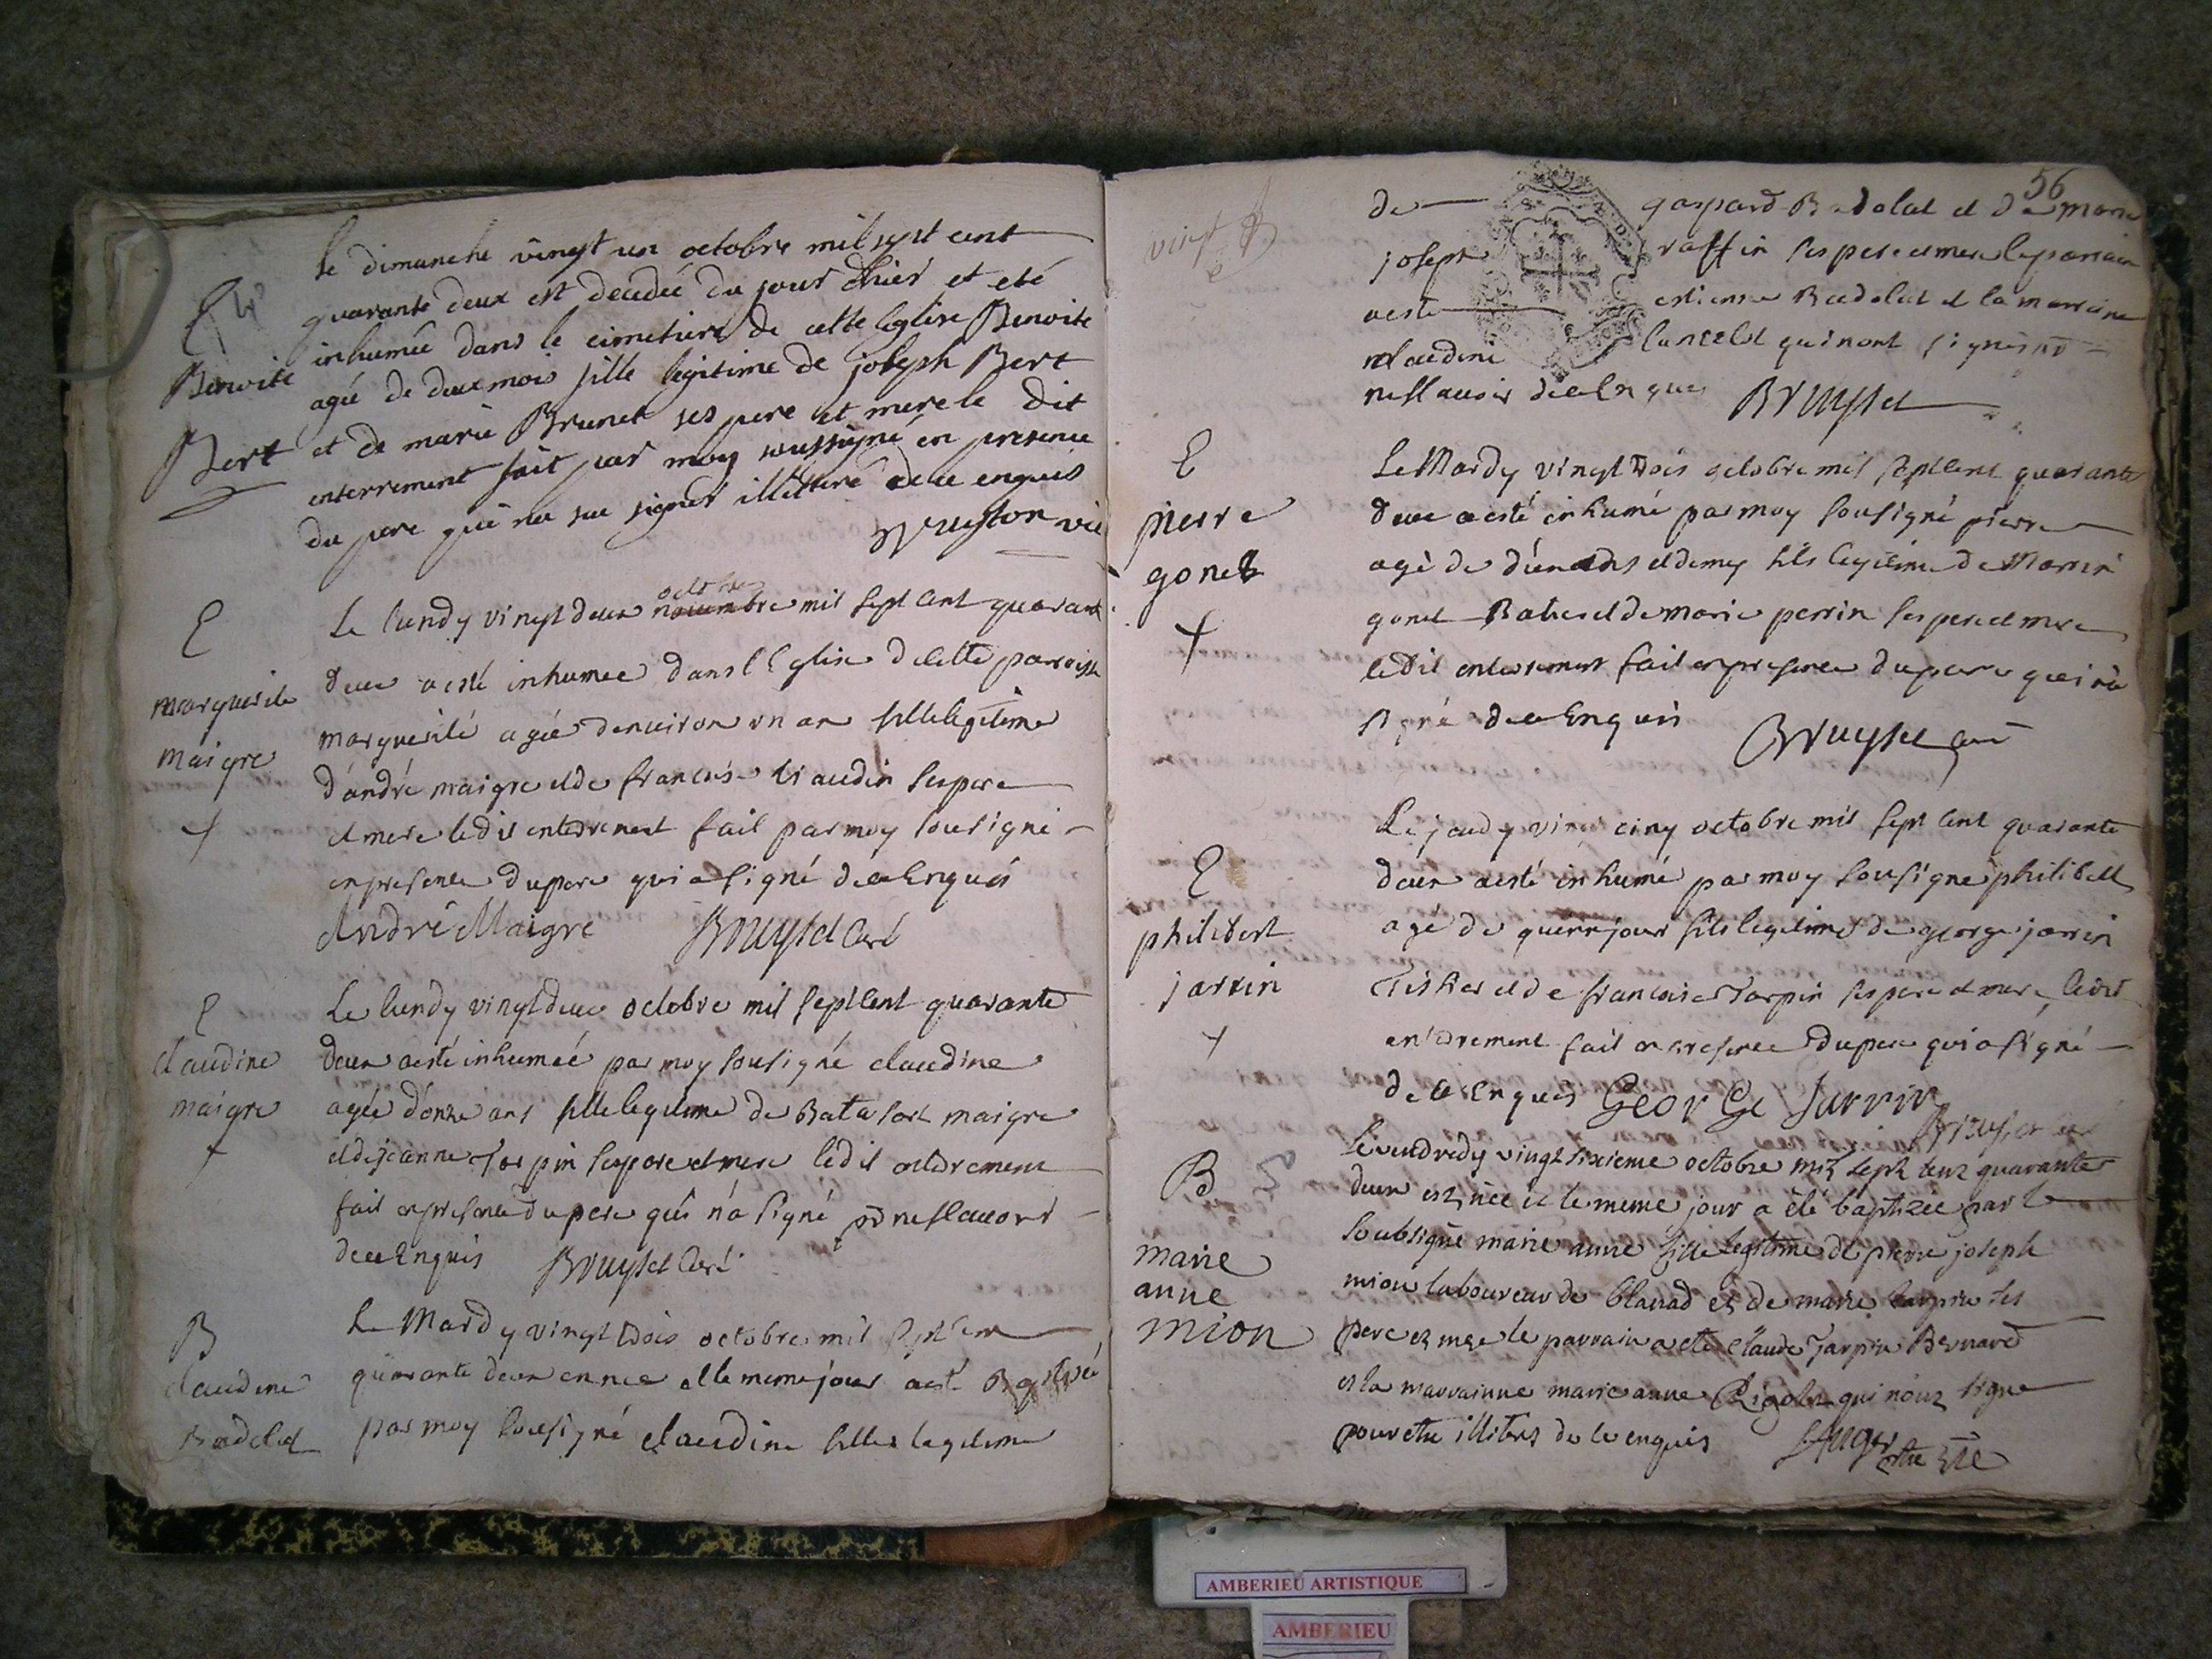 E
Benoite
Bert
le dimanche vingt un octobre mil sept cent
quarante deux est decedée du jour dhier et eté
inhumée dans le cimetiere de cette eglise Benoite
agée de deux mois fille legitime de joseph Bert
et de marie Brunet ses pere et mere le dit
enterrement fait par moy soussigné en presence
du pere qui na sue signer illitteré de ce enquis
vic
E
marguerite
maigre
Le lundy vingt deux novembre octobre mil sept cent quarante
deux a esté inhumee dans l Eglise de cette parroisse
marguerite agée denuiron un an fille legitime
d'andré maigre et de francoise ses pere
et mere ledit enterrement fait par moy sousigné
en presence du pere qui a signé de ce Enquis
André Maigre Bruyset Curé
E
claudine
maigre
Le lundy vingt deux octobre mil sept cent quarante
deux a esté inhumée par moy sousigné claudine
agée d'onze ans fille legitime de maigre
et de jeanne ses pere et mere ledit enterrement
fait en presence du pere qui n'a signé pr ne scavoir
de ce Enquis Bruyset Curé
B
claudine
Badolat
Le Mardy vingt trois octobre mil sept cent
quarante deux en nee et le meme jour a esté Baptisée
par moy sousigné claudine fille legitime
56
vingt
de gaspard Badolat et de marie
joseph raffin ses pere et mere le parrain
a esté estienne Badolat et la marraine
claudine qui n'ont signés pr
ne scavoir de ce Enquis Bruyset
E
pierre
gonet
Le Mardy vingt trois octobre mil sept cent quarante
deux a esté inhumé par moy sousigné pierre
agé de d'un ans et demy fils legitime de
gonet et de marie perrin ses pere et mere
ledit enterrement fait en presence du pere qui n'a
signé de ce Enquis Bruyset curé
E
philibert
jarrin
Le jeudy vint cinq octobre mil sept cent quarante
deux a esté inhumé par moy sousigné philibert
agé de jour fils legitime de george jarrin
et de francoise Tarpin ses pere et mere ledit
enterrement fait en presence du pere qui a signé
de ce Enquis GeorGe Jarrin
B
marie
anne
mion
le vendredy vingt sixieme octobre mil sept cent quarante
deux est née et le meme jour a été baptizée par le
soubsigné marie anne fille legitime de pierre joseph
mion laboureur de et de marie tarpin ses
pere et mere le parrain a ete claude Tarpin Bernard
et la marrainne marie anne qui n'ont signe
pour etre illiters de ce enquis
AMBERIEU ARTISTIQUE
AMBERIEU